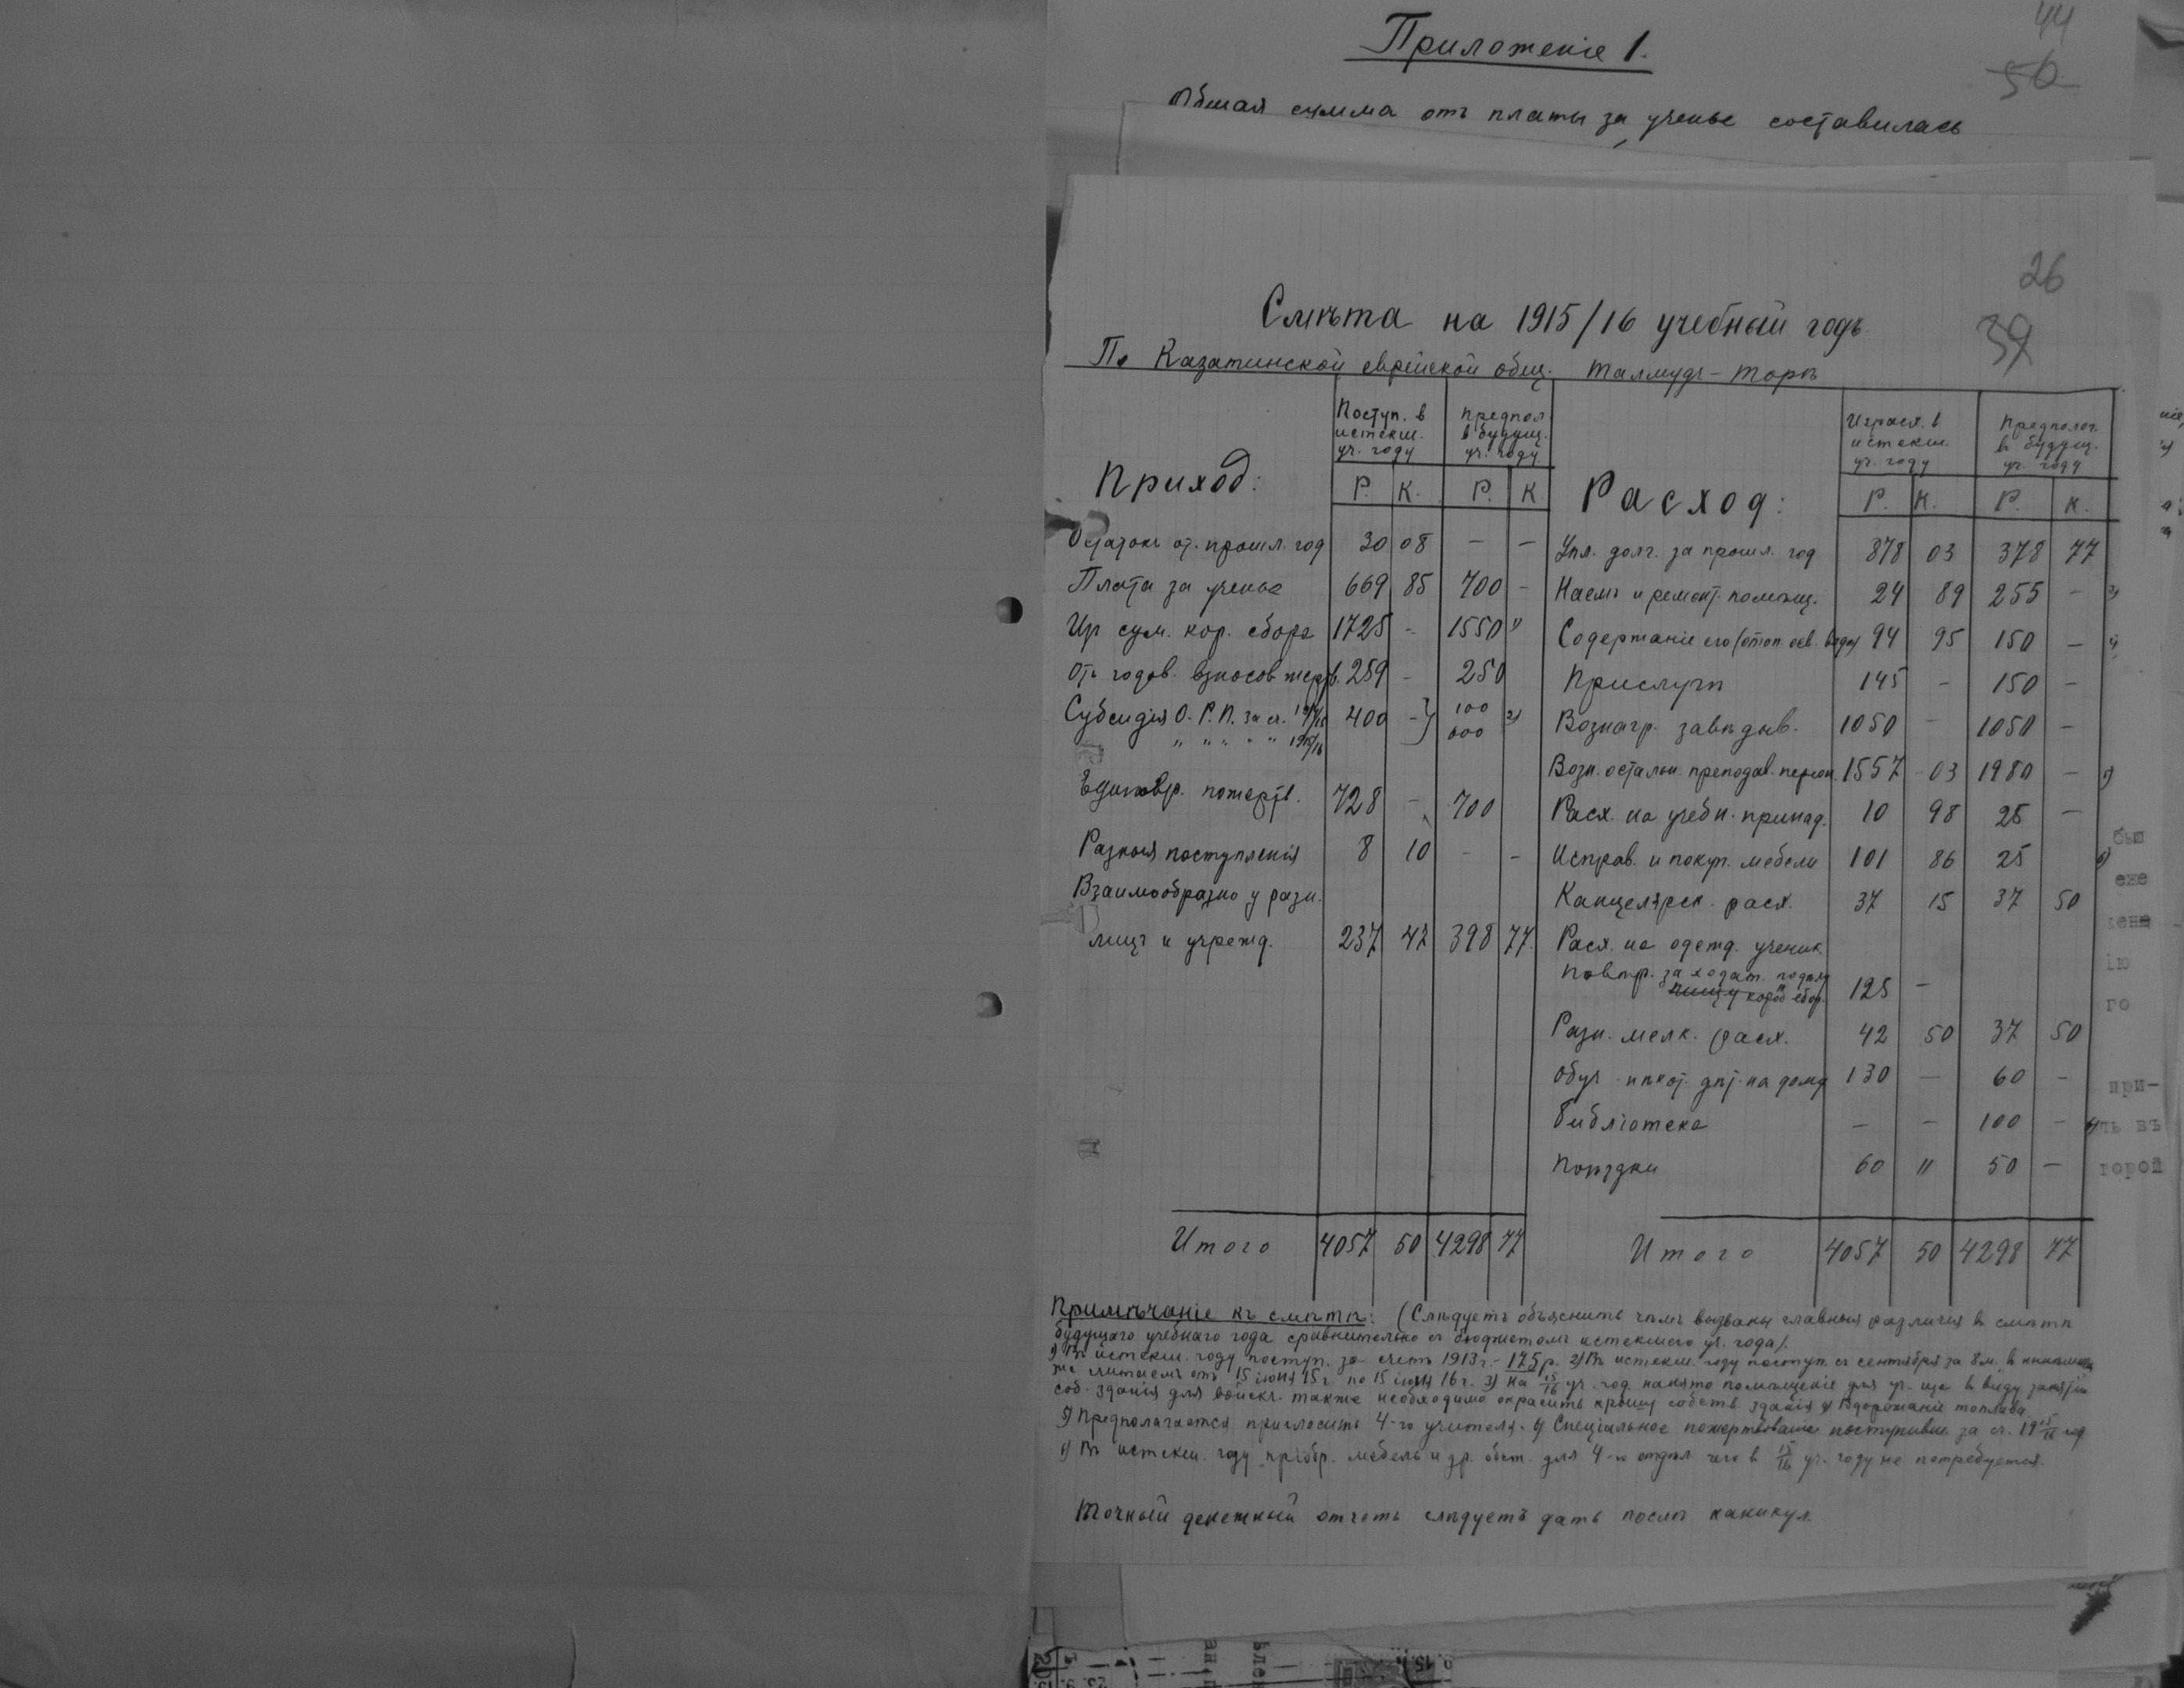 44
50
Приложеніе 1.
Общая сумма отъ платы за ученье составилась
26
39
Смѣта на 1915/16 учебный годъ
По Казатинской еврейской общ. Талмудъ-Торѣ
Приход: Поступ. в истекш. уч. году Р. К. Предпол в будущ. уч. году Р. К.
Остатокъ от. прошл. год 30 08 — —
Плата за ученье 669 85 700 -
Из сум. кор. сбора 1725 - 1550 1)
Отъ годов. взносов жертв. 259 - 250
Субсидія О. Р. П. за сч. 1914/15 400 - 100 2)
" " " " " 1915/16 600
Единовр. пожертв. 728 - 700
Разныя поступленія 8 10 - -
Взаимообразно у разн.
лицъ и учрежд. 237 47 398 77
Итого 4057 50 4298 77
Расход: Израсх. в истекш. уч. году Р. К. Предполог. в будущ. уч. году Р. К.
Упл. долг. за прошл. год 878 03 378 77
Наемъ и ремонт. помѣщ. 24 89 255 - 3)
Содержаніе его (отоп. осв. вода) 94 95 150 — 4)
Прислуги 145 - 150 -
Вознагр. завѣдыв. 1050 - 1050 -
Возн. остальн. преподав. персон. 1557 03 1980 — 5)
Расх. на учебн. принад. 10 98 25 —
Исправ. и покуп. мебели 101 86 25 6)
Канцелярск. расх. 37 15 37 50
Расх. на одежд. ученик.
повѣр. за ходат. по
короб сбор. 125 -
Разн. мелк. расх. 42 50 37 50
Обуч дѣт. на дому 130 — 60 -
Библіотека — - 100 -
Поѣздки 60 " 50 —
Итого 4057 50 4298 77
Примѣчаніе къ смѣтѣ: (Слѣдуетъ объяснить чѣмъ вызваны главныя различія в смѣтѣ
будущаго учебнаго года сравнительно съ бюджетомъ истекшаго уч. года).
1) Въ истекш. году поступ. за счетъ 1913 г. - 175 р. 2) Въ истекш. году поступ. съ сентября за 8 м. в
же считаемъ отъ 15 іюня 15 г. по 15 іюня 16 г. 3) На 15/16 уч. год нанято помѣщеніе для уч-ща в виду занятія
соб. зданія для войскъ. также необходимо окрасить крышу собств. зданія 4) Вздорожаніе топлива
5) Предполагается пригласить 4-го учителя. 6) Спеціальное пожертвованіе поступивш. за сч. 1915/16 год
6) Въ истекш. году пріобр. мебель и др. обст. для 4-го отдѣл чего в 15/16 уч. году не потребуется.
Точный денежный отчетъ слѣдуетъ дать послѣ каникул.
бы
еже
ію
го
при-
ть въ
торой